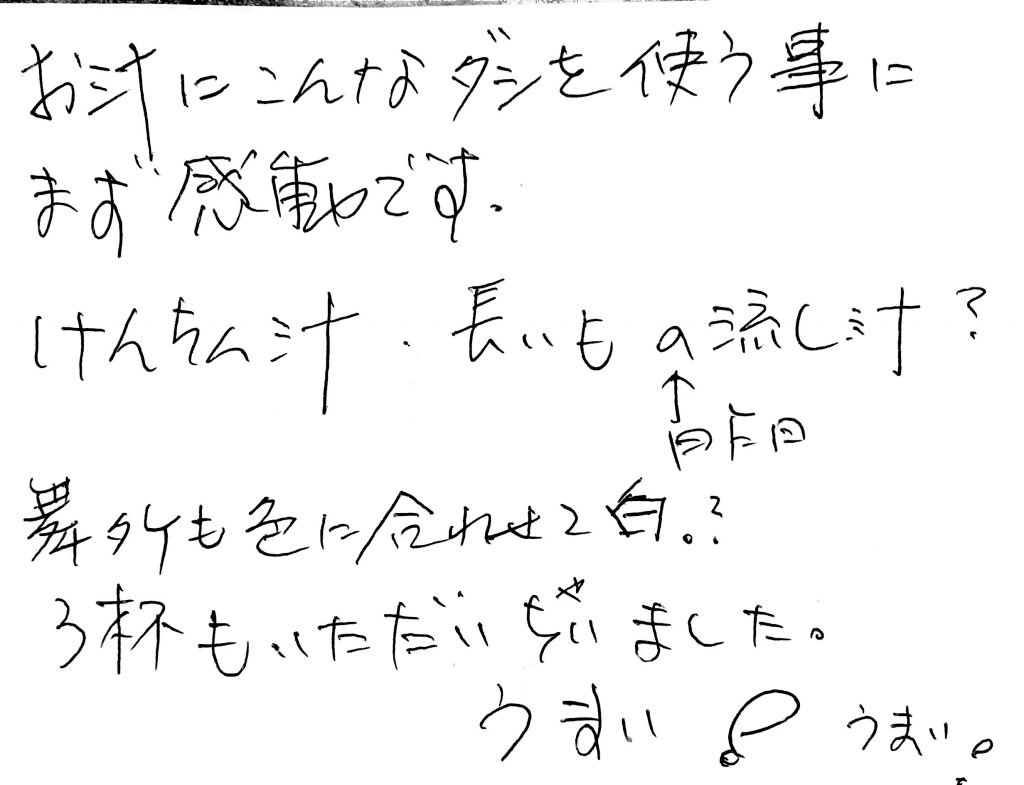 お汁にこんなダシを使う事に
まず感動です。
けんちん汁・長いもの流し汁?
↑
舞タケも色に合わせて白。?
3杯もいただいちゃいました。
うまい うまい。